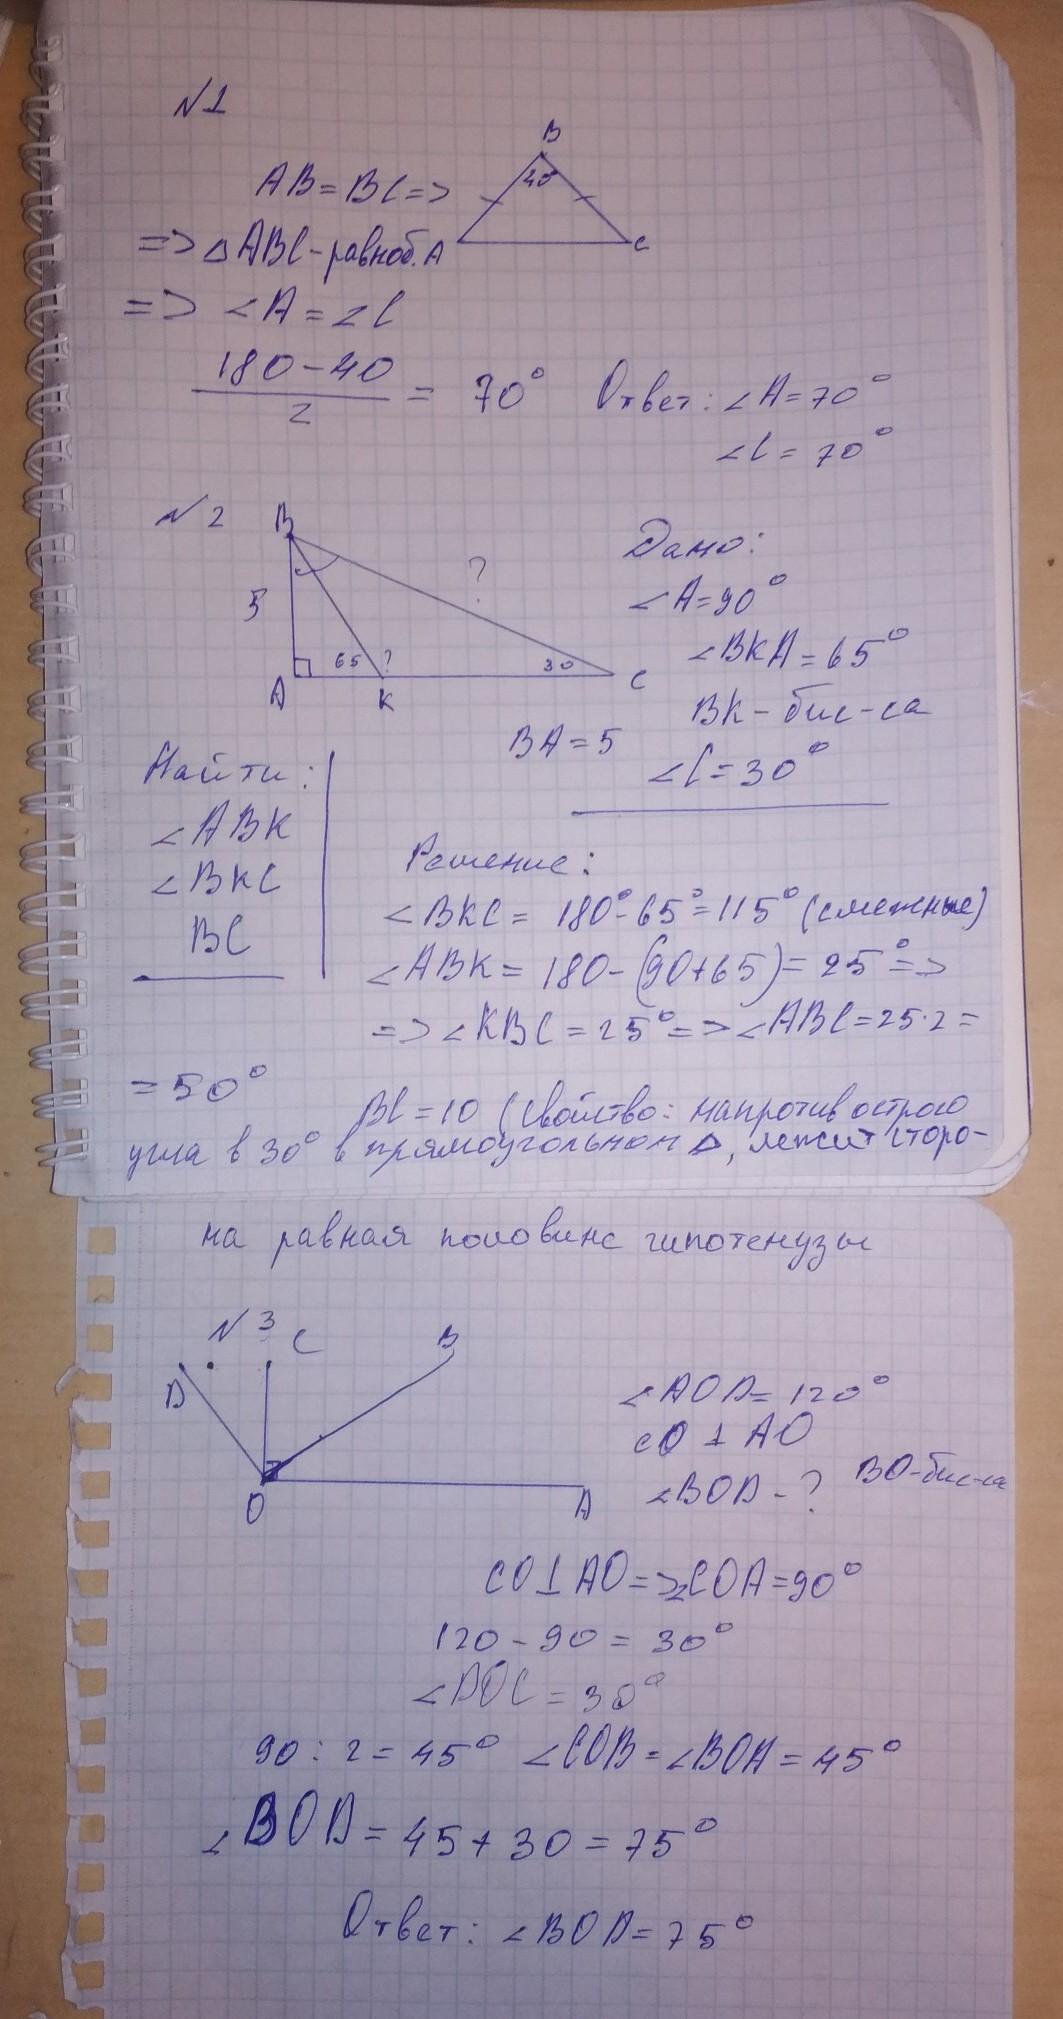 №1
B
40°
A
C
AB = BC =>
=> △ABC - равноб.
=> ∠A = ∠C
180 - 40
2
= 70°
Ответ: ∠A = 70°
∠C = 70°
№2
B
5
?
65
?
30
A
K
C
Дано:
∠A = 90°
∠BKA = 65°
BK - бис-са
BA = 5
∠C = 30°
Найти:
∠ABK
∠BKC
BC
Решение:
∠BKC = 180° - 65° = 115° (смежные)
∠ABK = 180 - (90 + 65) = 25° =>
=> ∠KBC = 25° => ∠ABC = 25 · 2 =
= 50°
BC = 10 (Свойство: напротив острого
угла в 30° в прямоугольном △, лежит сторо-
на равная половине гипотенузы
№3
D
C
B
O
A
∠AOD = 120°
CO ⊥ AO
∠BOD - ?
BO - бис-са
CO ⊥ AO => ∠COA = 90°
120 - 90 = 30°
∠DOC = 30°
90 : 2 = 45° ∠COB = ∠BOA = 45°
∠BOD = 45 + 30 = 75°
Ответ: ∠BOD = 75°